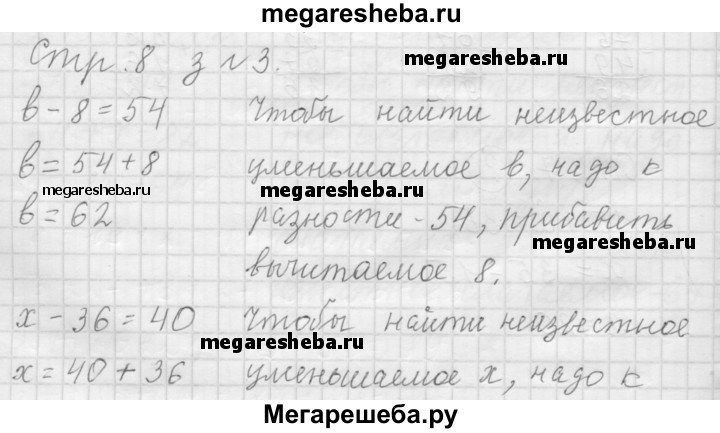 megaresheba.ru
Стр. 8 з № 3.
megaresheba.ru
в - 8 = 54 Чтобы найти неизвестное
в = 54 + 8 уменьшаемое в, надо к
megaresheba.ru
в = 62 разности - 54, прибавить
megaresheba.ru
вычитаемое 8.
х - 36 = 40 Чтобы найти неизвестное
megaresheba.ru
х = 40 + 36 уменьшаемое х, надо к
Мегарешеба.ру